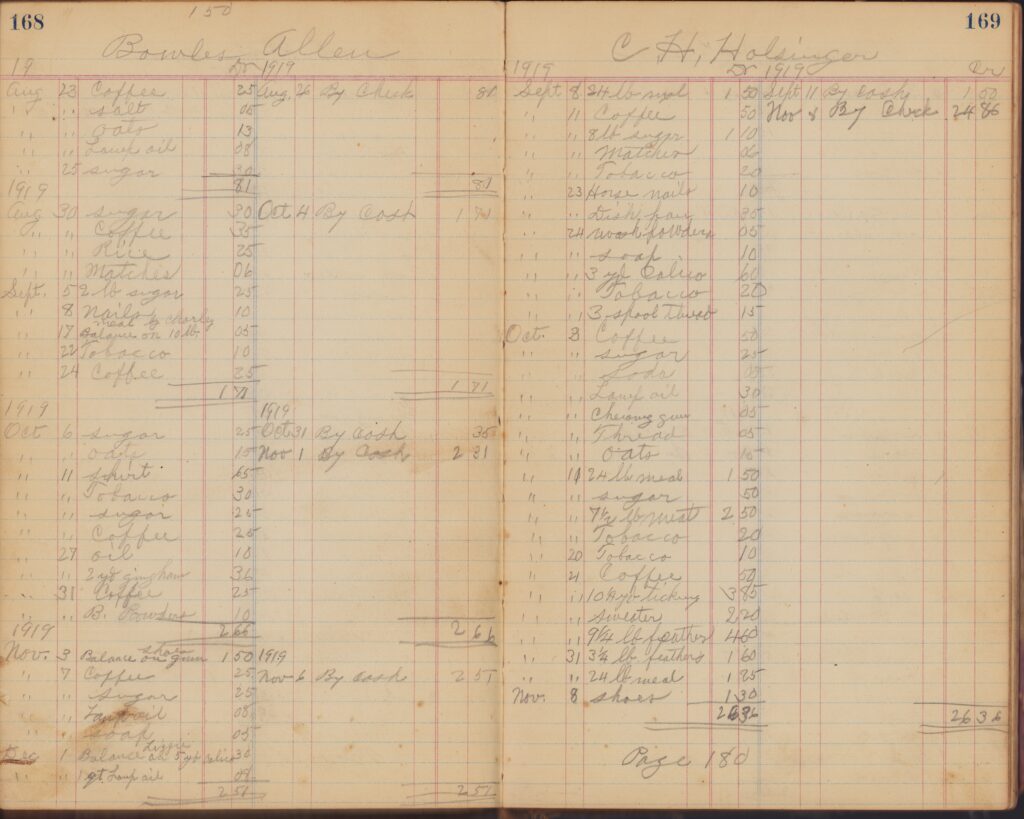 168
150
Bowles Allen
19 Dr 1919
Aug 23 Coffee 25 Aug. 26 By Check 81
" " salt 05
" " oats 13
" " Lamp oil 08
" 25 sugar 30
81 81
1919
Aug 30 sugar 30 Oct 4 By Cash 1 71
" " Coffee 35
" " Rice 25
" " Matches 06
Sept. 5 2 lb sugar 25
" 8 Nails 10
" 17 Balance on 10 lb. meal by Charley 05
" 22 Tobacco 10
" 24 Coffee 25
1 71 1 71
1919 1919
Oct 6 sugar 25 Oct 31 By Cash 35
" " oats 15 Nov 1 By Cash 2 31
" 11 shirt 65
" " Tobacco 30
" " sugar 25
" " Coffee 25
" 27 oil 10
" " 2 yd gingham 36
" 31 Coffee 25
" " B. Powders 10
1919 2 66 2 66
Nov. 3 Balance on shoes 1 50 1919
" 7 Coffee 25 Nov 6 By Cash 2 51
" " sugar 25
" " Lamp oil 08
" " soap 05
Dec 1 Balance on 5 yd calico Lizzie 30
" " 1 qt. Lamp oil 08
2 51 2 51
169
C H, Holsinger
1919 Dr 1919 Cr
Sept. 8 24 lb meal 1 50 Sept 11 By Cash 1 50
" 11 Coffee 50 Nov 8 By Check 24 86
" " 8 lb sugar 1 10
" " Matches 06
" " Tobacco 20
" 23 Horse nails 10
" " Dish pan 35
" 24 wash powders 05
" " soap 10
" " 3 yd Calico 60
" " Tobacco 20
" " 3 spool thread 15
Oct. 8 Coffee 50
" " sugar 25
" " Soda 05
" " Lamp oil 30
" " Chewing gum 05
" " Thread 05
" " oats 15
" 11 24 lb meal 1 50
" " sugar 50
" " 7½ lb meat 2 50
" " Tobacco 20
" 20 Tobacco 10
" 21 Coffee 50
" " 10 yd ticking 3 85
" " sweater 2 20
" " 9¼ lb feather 4 60
" 31 3¼ lb feathers 1 60
" " 24 lb meal 1 25
Nov. 8 shoes 1 30
26 36 26 36
Page 180